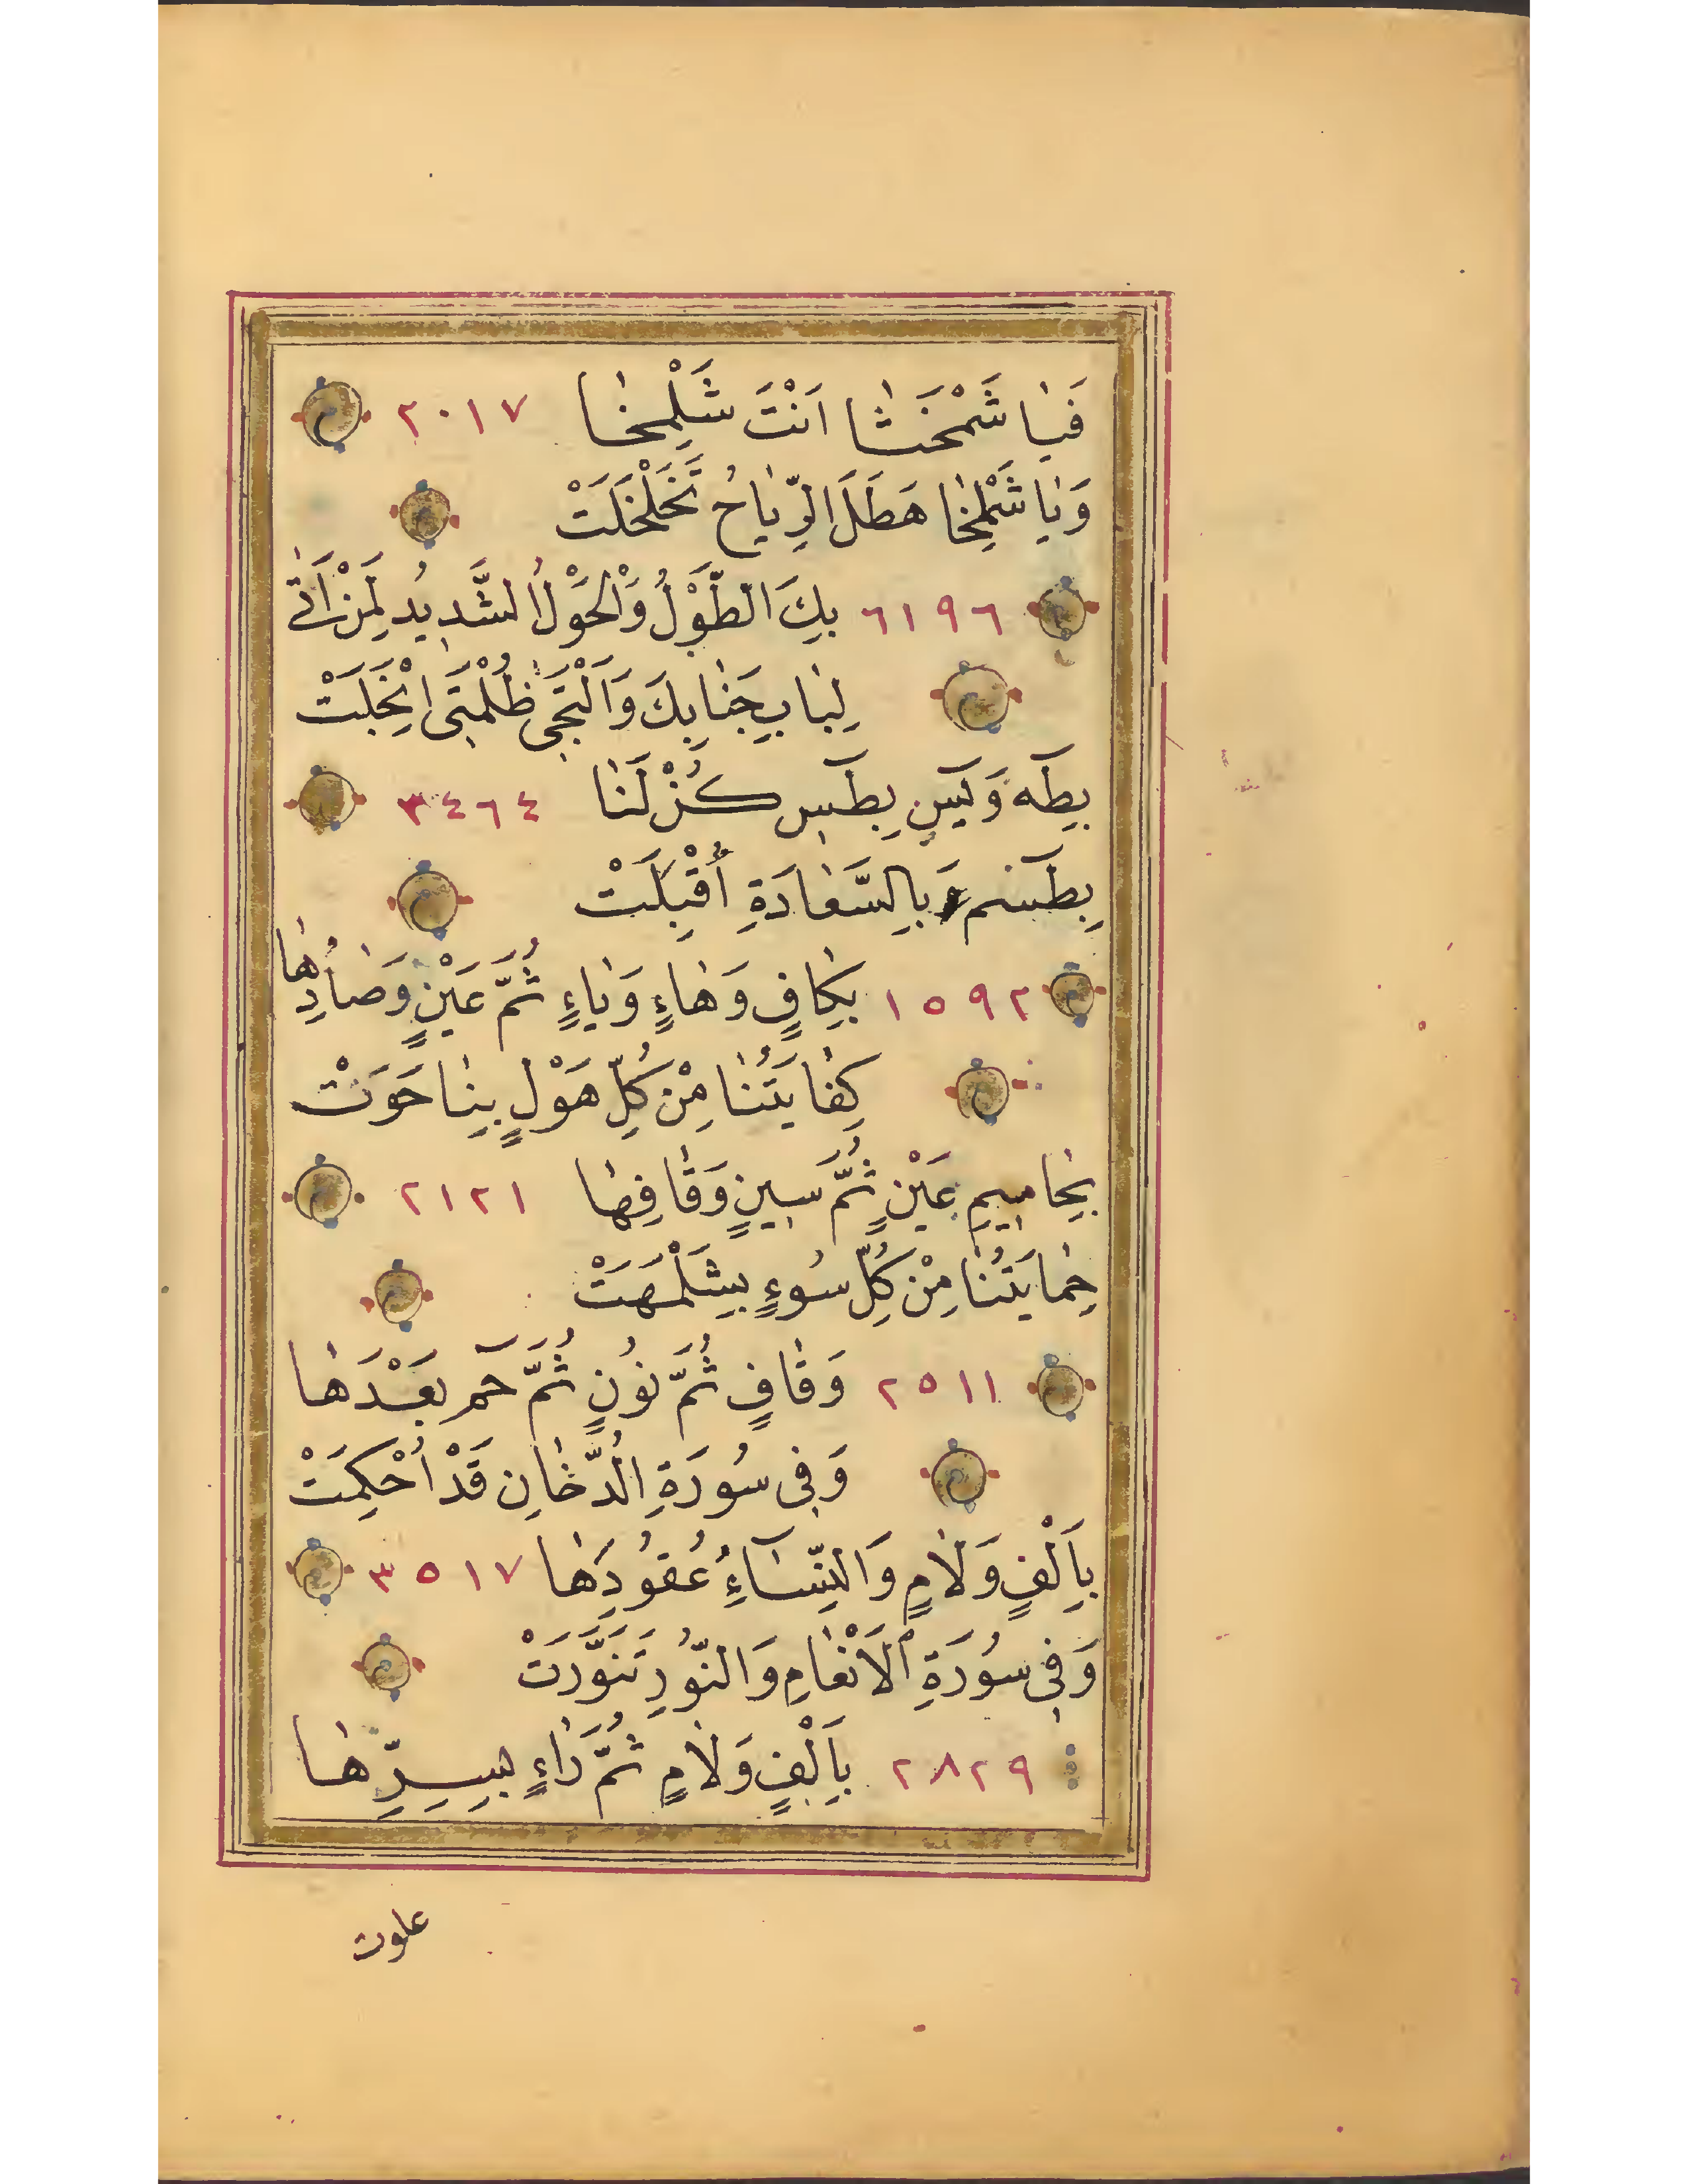 فَيَا شَمْخَشَا اَنْتَ شَلْمِخَا ٢٠١٧
وَيَا شَمْلِخَا هَطَلَ الرِّيَاحُ تَخَلْخَلَتْ
٦١٩٦ بِكَ الطَّوْلُ وَالْحَوْلُ الشَّدِيدُ لِمَنْ اَتٰى
لِبَابِ جَنَابِكَ وَالْتَجٰى ظُلْمَتِى انْجَلَتْ
بِطٰهَ وَيٰسِ بِطٰسِ كُنْ لَنَا ٣٤٦٤
بِطٰسٓمٓ وَبِالسَّعَادَةِ اُقْبِلَتْ
١٥٩٢ بِكَافٍ وَهَاءٍ وَيَاءٍ ثُمَّ عَيْنٍ وَصَادِهَا
كِفَايَتُنَا مِنْ كُلِّ هَوْلٍ بِنَا حَوَتْ
بِحَامِيمِ عَيْنٍ ثُمَّ سِينٍ وَقَافِهَا ٢١٢١
حِمَايَتُنَا مِنْ كُلِّ سُوءٍ بِشَلْمَهَتْ
٢٥١١ وَقَافٍ ثُمَّ نُونٍ ثُمَّ حٰمٓ بَعْدَهَا
وَفِى سُورَةِ الدُّخَانِ قَدْ اُحْكِمَتْ
بِاَلْفٍ وَلَامٍ وَالنِّسَاءِ عُقُودِهَا ٣٥١٧
وَفِى سُورَةِ الْاَنْعَامِ وَالنُّورِ تَنَوَّرَتْ
٢٨٢٩ بِاَلْفٍ وَلَامٍ ثُمَّ رَاءٍ بِسِرِّهَا
علوت